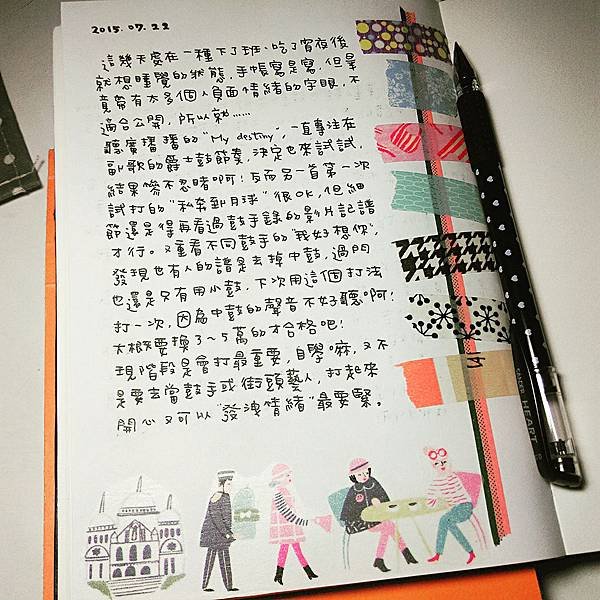 2015.07.22
這幾天處在一種下了班、吃了宵夜後
就想睡覺的狀態，手帳寫是寫，但畢
竟帶有太多個人負面情緒的字眼，不
適合公開，所以就……
聽廣播播的"My destiny"，一直專注在
副歌的爵士鼓節奏，決定也來試試，
結果慘不忍睹啊！反而另一首第一次
試打的"私奔到月球"很OK，但細
節還是得再看過鼓手錄的影片記譜
才行。又重看不同鼓手的"我好想你"，
發現也有人的譜是去掉中鼓，過門
也還是只有用小鼓，下次用這個打法
打一次，因為中鼓的聲音不好聽啊！
大概要換了3~5萬的才合格吧！
現階段是會打最重要，自學嘛，又不
是要去當鼓手或街頭藝人，打起來
開心又可以"發洩情緒"最要緊。
HEART